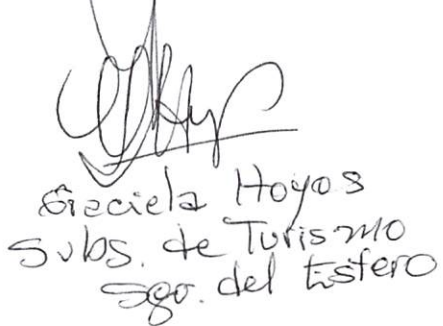 Graciela Hoyos
Subs. de Turismo
Sgo. del Estero